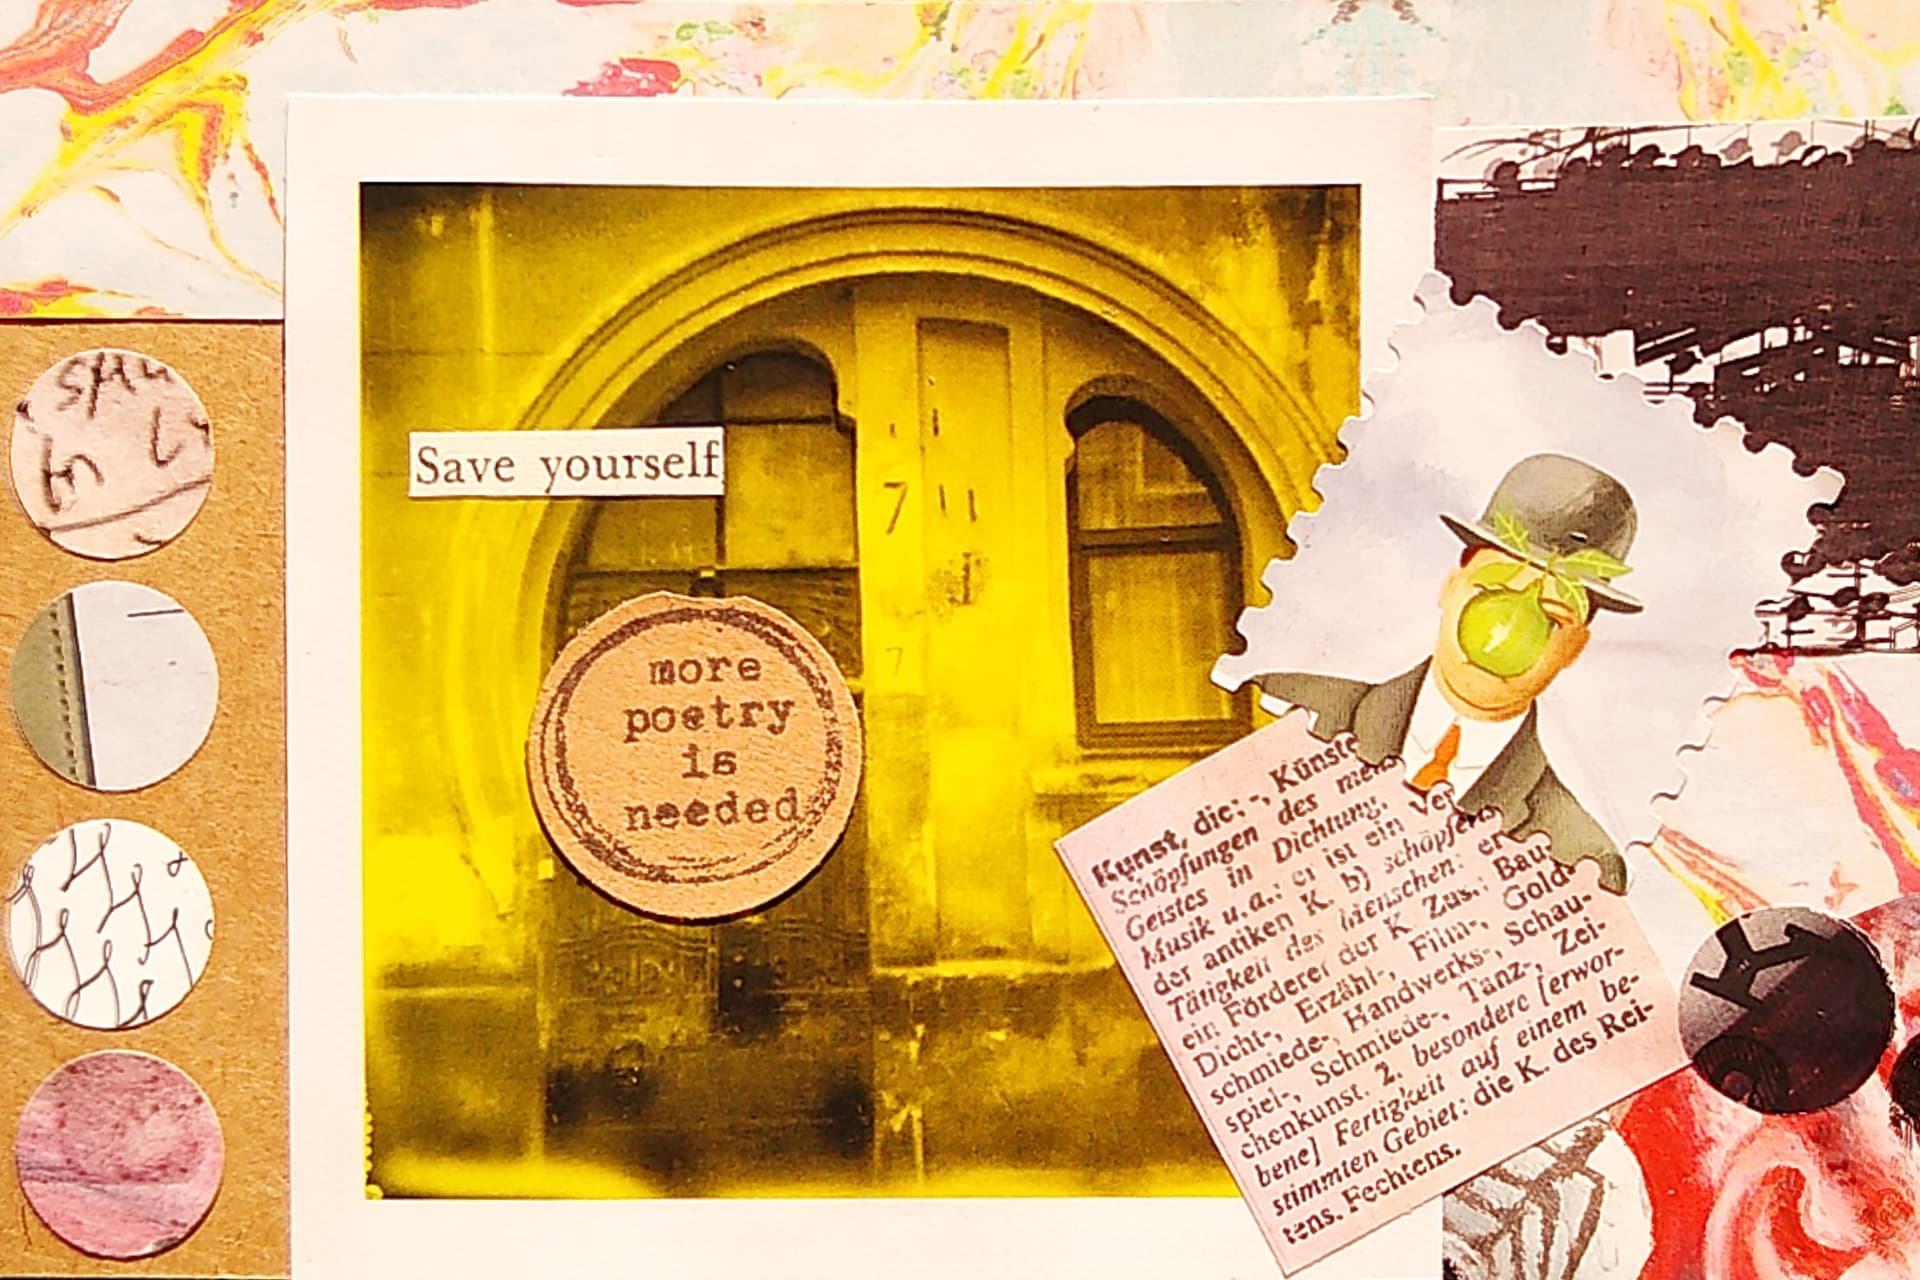 Save yourself
more
poetry
is
needed
7
7
Kunst, die; -, Künste
Schöpfungen des
Geistes in Dichtung,
Musik u. a.: er ist ein
der antiken K. b)
Tätigkeit des Menschen:
ein Förderer der K. Zus.: Bau-
Dicht-, Erzähl-, Film-, Gold-
schmiede-, Handwerks-, Schau-
spiel-, Schmiede-, Tanz-, Zei-
chenkunst. 2. besondere [erwor-
bene] Fertigkeit auf einem be-
stimmten Gebiet: die K. des Rei-
tens, Fechtens.